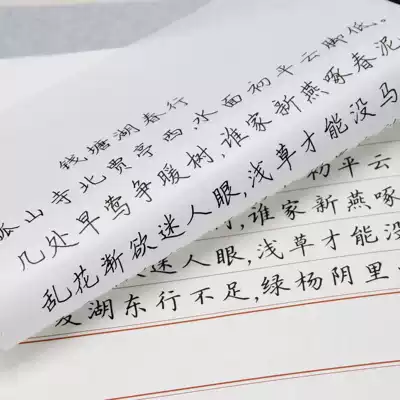 钱塘湖春行
孤山寺北贾亭西,水面初平云脚低。
几处早莺争暖树,谁家新燕啄春泥
乱花渐欲迷人眼,浅草才能没马
初平云
谁家新燕啄
迷人眼,浅草才能没
爱湖东行不足,绿杨阴里